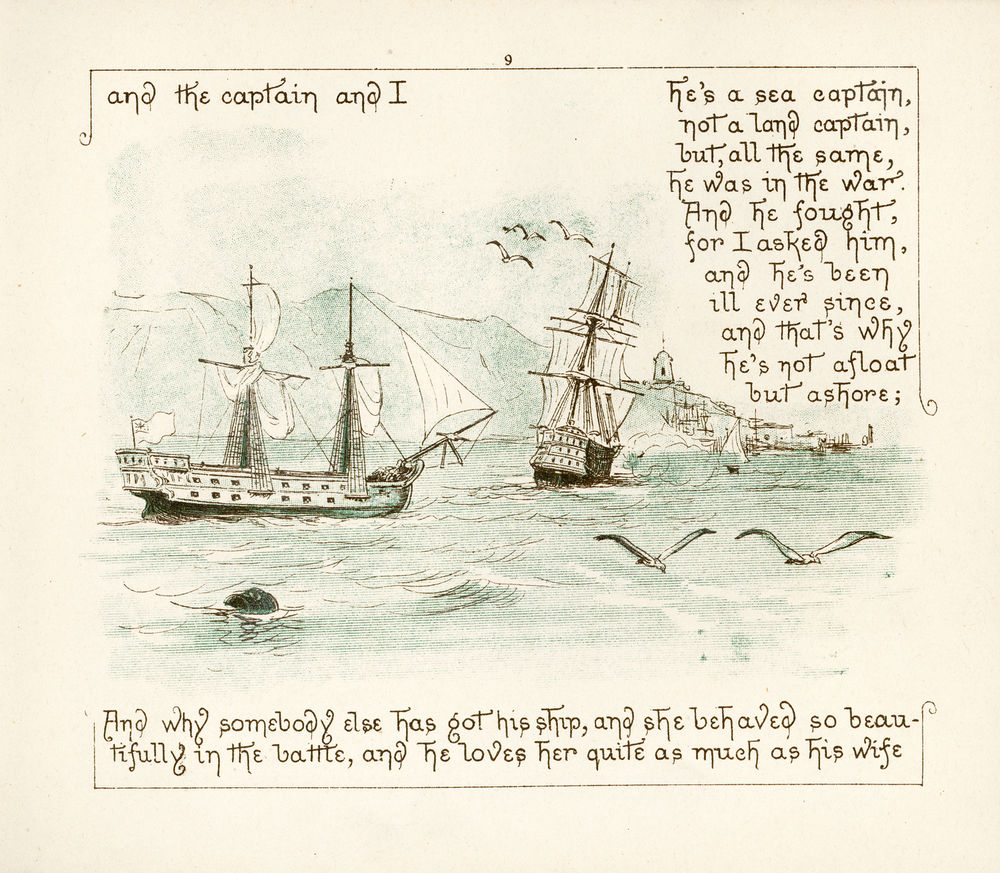 9
and the captain and I
He's a sea captain,
not a land captain,
but, all the same,
he was in the war.
And he fought,
for I asked him,
and he's been
ill ever since,
and that's why
he's not afloat
but ashore;
And why somebody else has got his ship, and she behaved so beau-
tifully in the battle, and he loves her quite as much as his wife